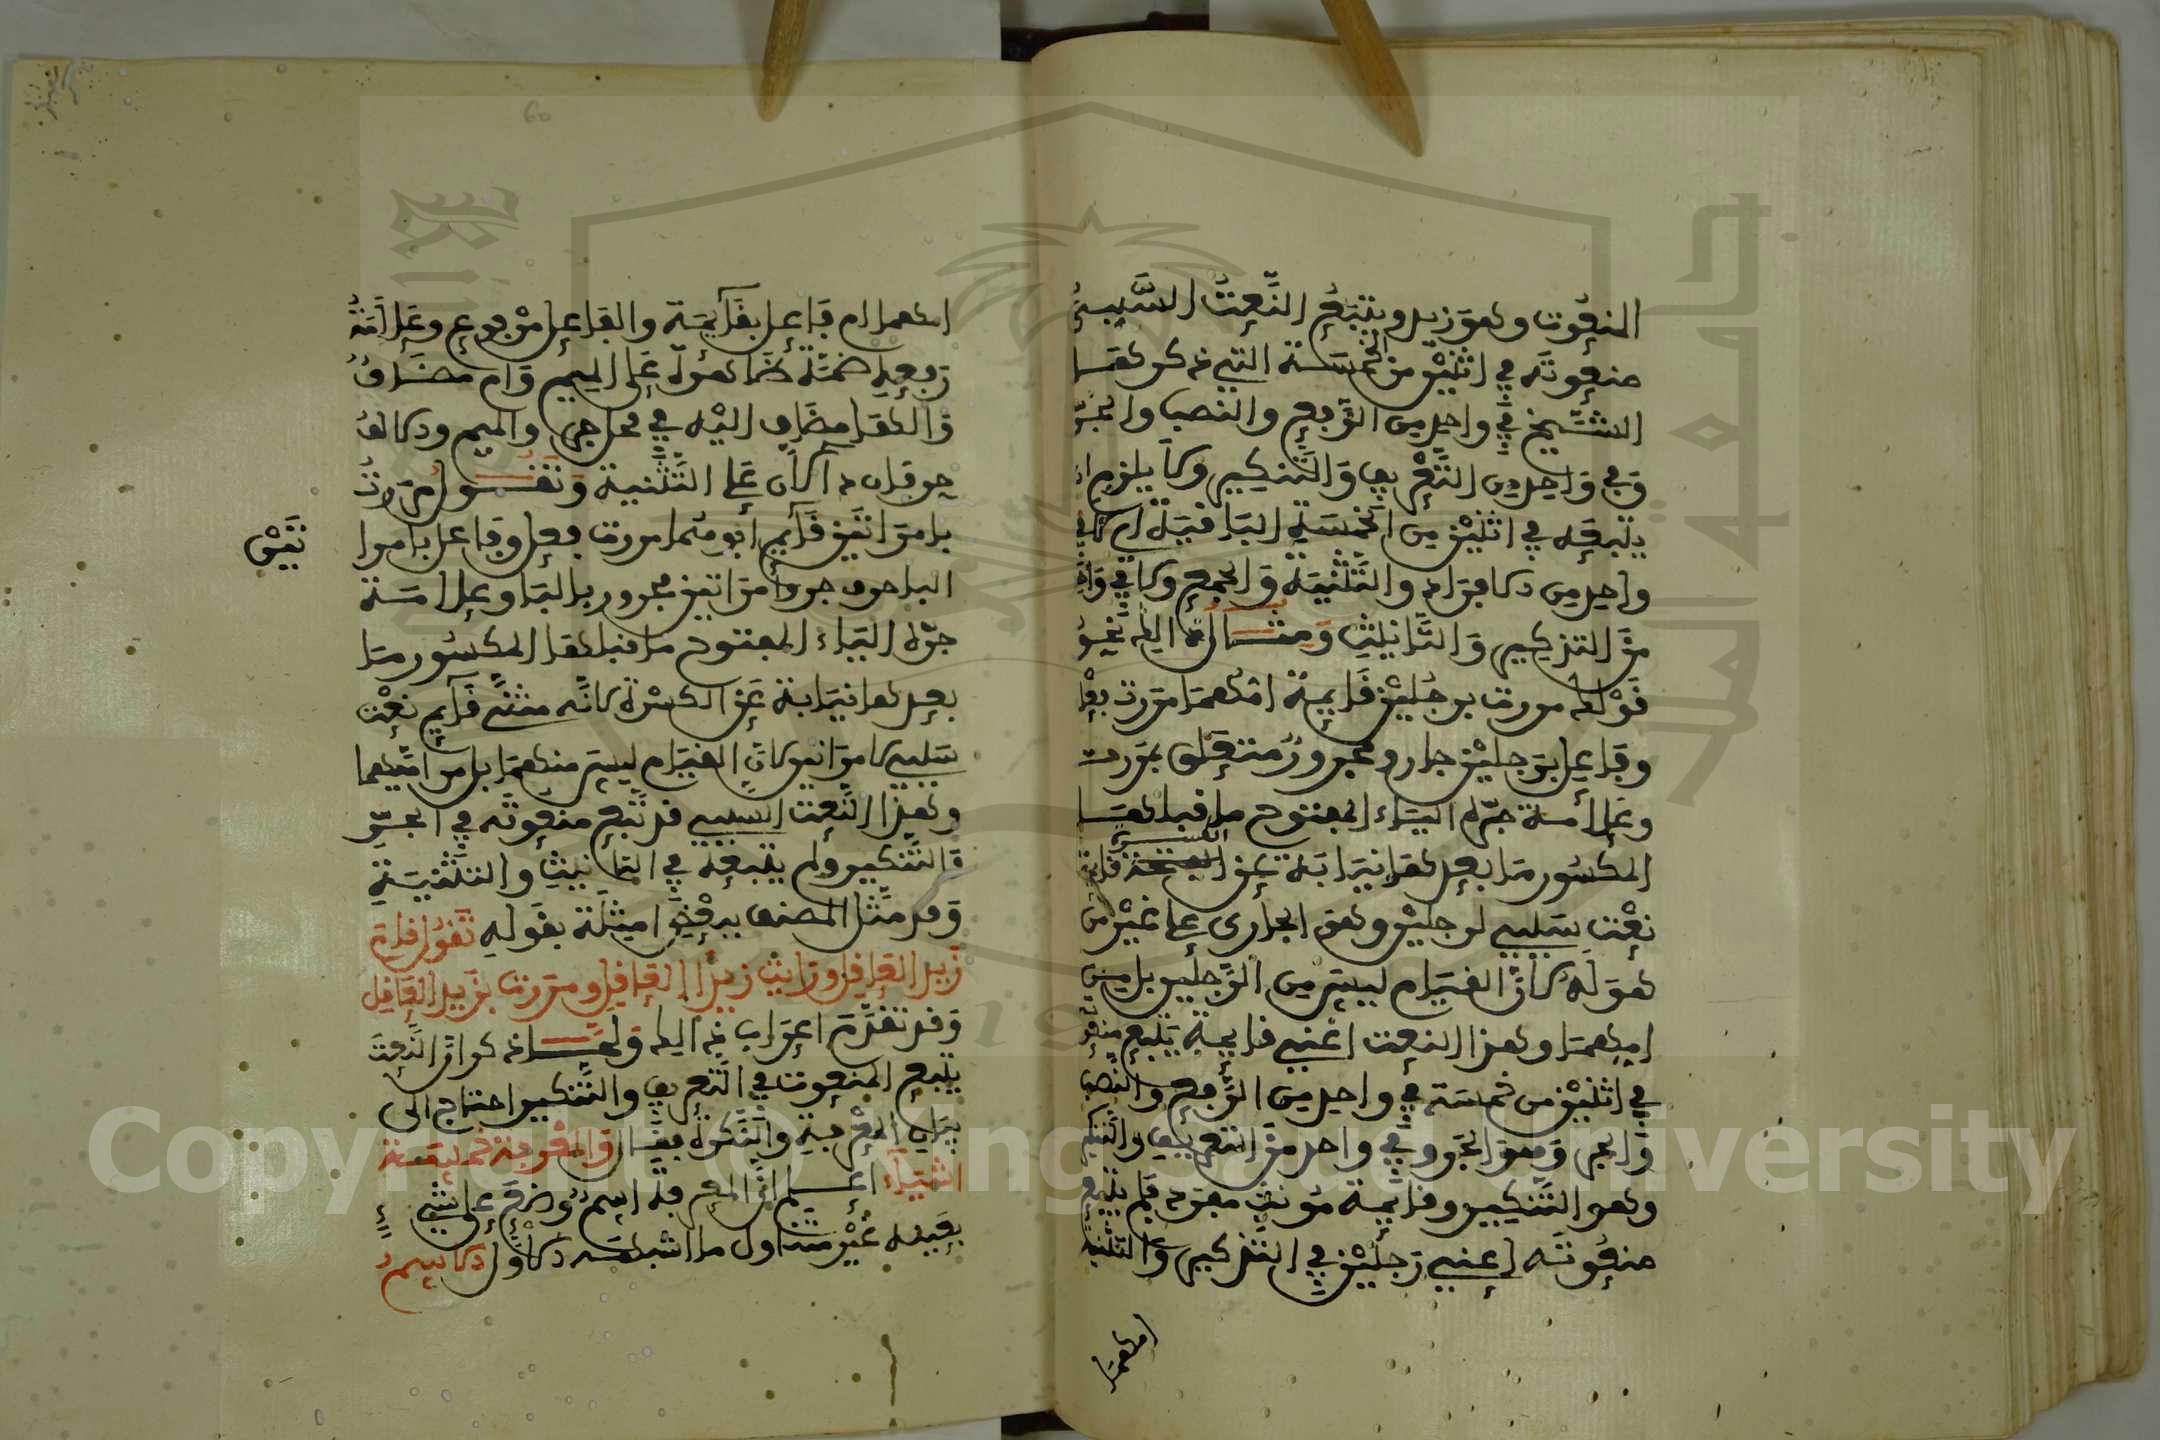 المنعوت وهو زيد ويتبع النعت السببي
منعوته في اثنين من الخمسة التي ذكرها
الشيخ في واحد من الرفع والنصب والجر
وفي واحد من التعريف والتنكير ولا يلزم ان
يتبعه في اثنين من الخمسة الباقية
واحد من الافراد والتثنية والجمع ولا في واحد
من التذكير والتانيث ومثال ذلك نحو
قولك مررت برجلين قائمة امهما مررت فعل
وفاعل برجلين جار ومجرور متعلق بمررت
وعلامة جره الياء المفتوح ما قبلها
المكسور ما بعدها نيابة عن الكسرة قائمة
نعت سببي لرجلين وهو الجاري على غير من
هو له لان القيام ليس من الرجلين بل من
امهما وهذا النعت اعني قائمة يتبع منعوته
في اثنين من خمسة في واحد من الرفع والنصب
والجر وهو الجر وفي واحد من التعريف والتنكير
وهو التنكير وقائمة مؤنث مفرد فلم يتبع
منعوته اعني رجلين في التذكير والتثنية
امهما
امهما ام فاعل بقائمة والفاعل مرفوع وعلامة
رفعه ضمة ظاهرة على الميم وام مضاف
والهاء مضاف اليه في محل جر والميم والالف
حرفان دالان على التثنية وتقول مررت
بامراتين قائم ابوهما مررت فعل وفاعل بامرا
تين
الباء حرف جر وامراتين مجرور بالباء وعلامة
جره الياء المفتوح ما قبلها المكسور ما
بعدها نيابة عن الكسرة لانه مثنى قائم نعت
سببي لامراتين لان القيام ليس منهما بل من ابيهما
وهذا النعت السببي قد تبع منعوته في الجر
والتنكير ولم يتبعه في التانيث والتثنية
وقد مثل المصنف للحقيقي امثلة بقوله تقول قام
زيد العاقل ورايت زيدا العاقل ومررت بزيد العاقل
وقد تقدم اعراب ذلك ولما ذكر ان النعت
يتبع المنعوت في التعريف والتنكير احتاج الى
بيان المعرفة والنكرة فقال والمعرفة خمسة
اشياء اعلم ان المعرفة اسم وضع على شيء
بعينه غير متناول ما اشبهه الاول الاسم